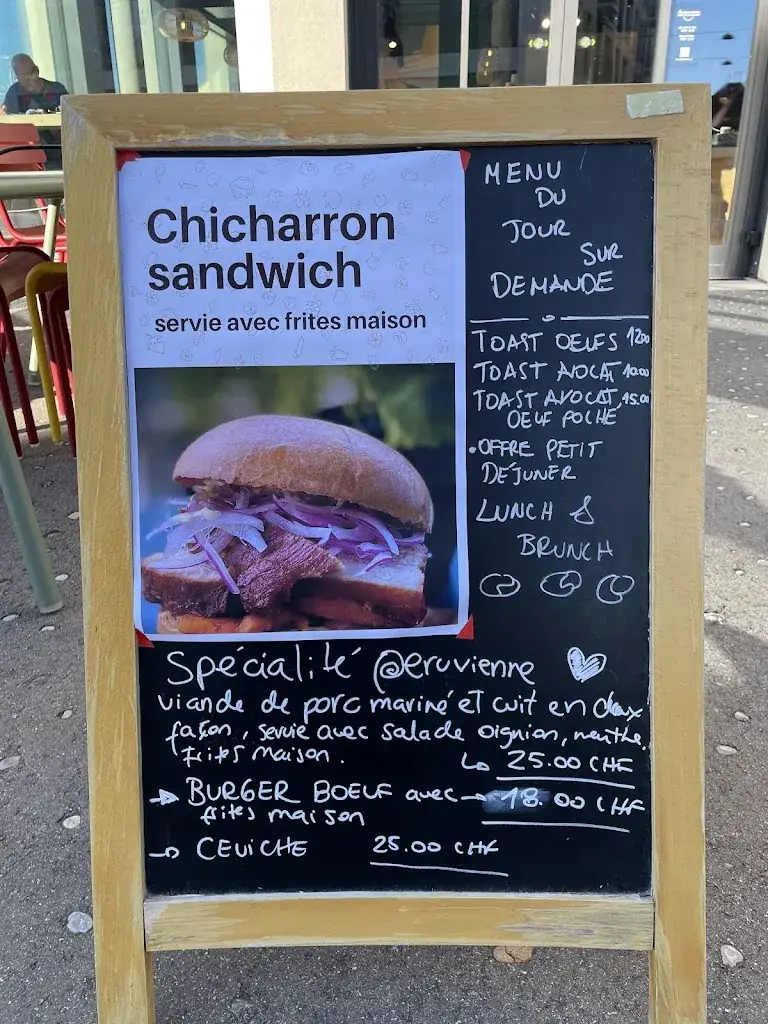 Chicharron
sandwich
servie avec frites maison
MENU
DU
JOUR
SUR
DEMANDE
TOAST OEUFS 12.00
TOAST AVOCAT 10.00
TOAST AVOCAT, 15.00
OEUF POCHÉ
•OFFRE PETIT
DÉJUNER
LUNCH &
BRUNCH
Spécialité Peruvienne
viande de porc mariné et cuit en deux
façon, servie avec salade oignion, menthe,
frites maison.
25.00 CHF
BURGER BOEUF avec 18.00 CHF
frites maison
CEVICHE 25.00 CHF